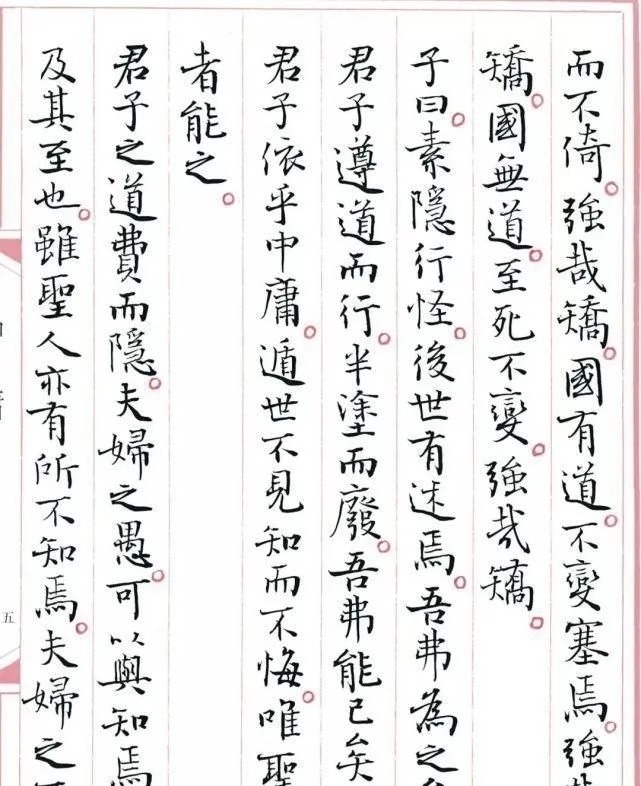 而不倚。強哉矯。國有道。不變塞焉。強
矯。國無道。至死不變。強哉矯。
子曰。素隱行怪。後世有述焉。吾弗為之
君子遵道而行。半塗而廢。吾弗能已矣
君子依乎中庸。遁世不見知而不悔。唯聖
者能之。
君子之道費而隱。夫婦之愚。可以與知焉
及其至也。雖聖人亦有所不知焉。夫婦之
五